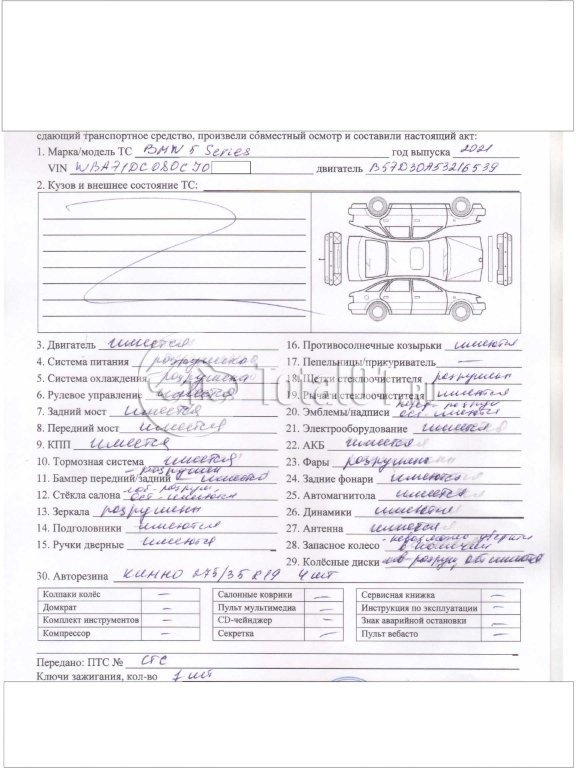 сдающий транспортное средство, произвели совместный осмотр и составили настоящий акт:
1. Марка/модель ТС BMW 5 Series год выпуска 2021
VIN WBA71DC080CJ0 двигатель B57D30A53216539
2. Кузов и внешнее состояние ТС:
3. Двигатель имеется
4. Система питания разрушена
5. Система охлаждения разрушена
6. Рулевое управление имеется
7. Задний мост имеется
8. Передний мост имеется
9. КПП имеется
10. Тормозная система имеется
11. Бампер передний/задний - разрушен имеется
12. Стёкла салона лоб-разруш ост-имеются
13. Зеркала разрушены
14. Подголовники имеются
15. Ручки дверные имеются
16. Противосолнечные козырьки имеются
17. Пепельницы/прикуриватель —
18. Щетки стеклоочистителя разрушен
19. Рычаги стеклоочистителя имеются
20. Эмблемы/надписи ост имеются
21. Электрооборудование имеется
22. АКБ имеется
23. Фары разрушены
24. Задние фонари имеются
25. Автомагнитола имеется
26. Динамики имеются
27. Антенна имеется
28. Запасное колесо - невозможно в наличии
29. Колёсные диски разруш, ост имеются
30. Авторезина кинно 275/35 R19 4 шт
Колпаки колёс — Салонные коврики — Сервисная книжка —
Домкрат — Пульт мультимедиа — Инструкция по эксплуатации —
Комплект инструментов — CD-чейнджер — Знак аварийной остановки —
Компрессор — Секретка — Пульт вебасто —
Передано: ПТС № СТС
Ключи зажигания, кол-во 1 шт
Total01.ru